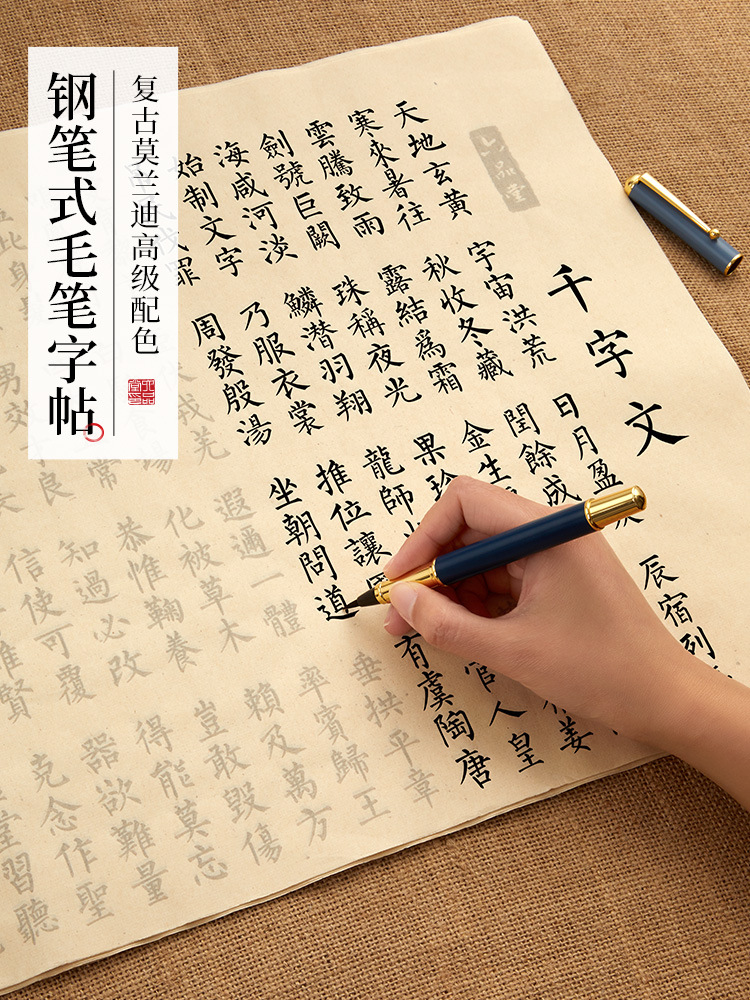 钢笔式毛笔字帖
复古莫兰迪高级配色
一品堂
千字文
天地玄黄 宇宙洪荒 日月盈昃 辰宿列
寒來暑往 秋收冬藏 閏餘成
雲騰致雨 露結爲霜 金生 姜
劍號巨闕 珠稱夜光 果珍
海咸河淡 鱗潛羽翔 龍師 官人皇
始制文字 乃服衣裳 推位讓 有虞陶唐
罪 周發殷湯 坐朝問道 垂拱平章
戎羌 遐邇一體 率賓歸王
化被草木 賴及萬方
此身 常 恭惟鞠養 豈敢毀傷
男效 良 知過必改 得能莫忘
信使可覆 器欲難量
賢 克念作聖
堂習聽